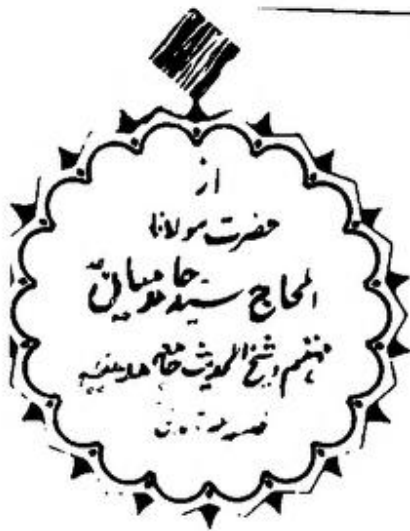 از
حضرت مولانا
الحاج سید حامد میاں
مہتمم و شیخ الحدیث جامعہ مدنیہ